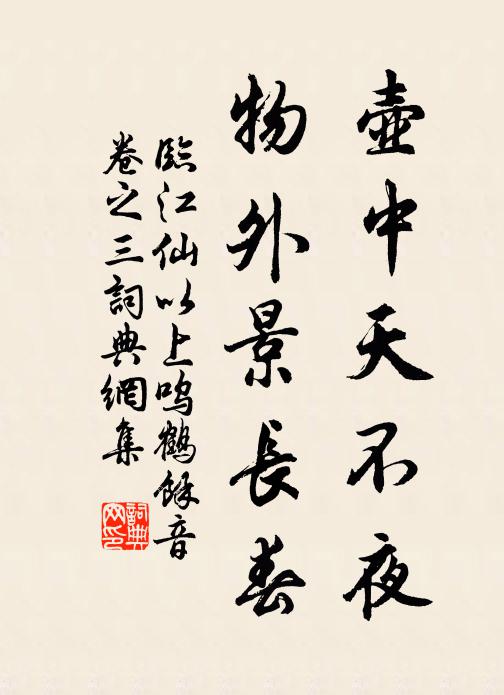 壺中天不夜
物外景長春
臨江仙以上鳴鶴餘音
卷之三詞典網集
詞典网印